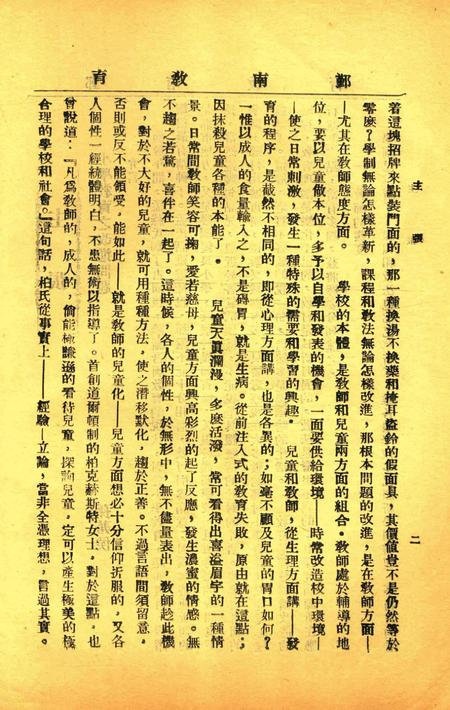 鄞南教育
主張
二
着這塊招牌來點裝門面的，那一種換湯不換藥和掩耳盜鈴的假面具，其價值豈不是仍然等於
零麽？學制無論怎樣革新，課程和教法無論怎樣改進，那根本問題的改進，是在教師方面——
——尤其在教師態度方面。　學校的本體，是教師和兒童兩方面的組合。教師處於輔導的地
位，要以兒童做本位，多予以自學和發表的機會，一面要供給環境——時常改造校中環境——
——使之日常刺激，發生一種特殊的需要和學習的興趣。　兒童和教師，從生理方面講——發
育的程序，是截然不相同的，即從心理方面講，也是各異的；如毫不顧及兒童的胃口如何？
一惟以成人的食量輸入之，不是礙胃，就是生病。從前注入式的教育失敗，原由就在這點；
因抹殺兒童各種的本能了。　兒童天眞瀾漫，多麽活潑，常可看得出喜溢眉宇的一種情
景。日常間教師笑容可掬，愛若慈母，兒童方面興高彩烈的起了反應，發生濃蜜的情感。無
不趨之若鶩，喜作在一起了。這時候，各人的個性，於無形中，無不儘量表出，教師趁此機
會，對於不大好的兒童，就可用種種方法，使之潛移默化，趨於正善。不過言語間須留意。
否則或反不能領受。能如此——就是教師的兒童化——兒童方面想必十分信仰折服的，又各
人個性一經統體明白，不患無術以指導了。首創道爾頓制的柏克赫斯特女士，對於這點，也
曾說道：『凡爲教師的，成人的，倘能極謙遜的看待兒童，探詢兒童。定可以產生極美的極
合理的學校和社會。』這句話，柏氏從事實上——經驗——立論，當非全憑理想，言過其實。